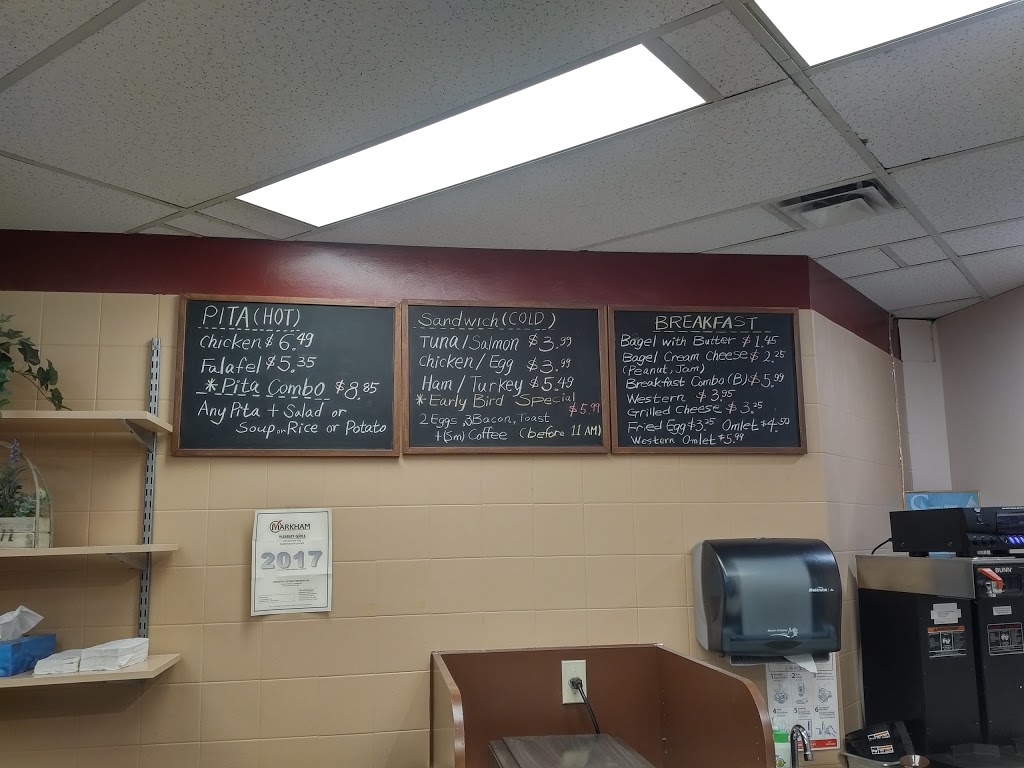 PITA (HOT)
Chicken $ 6.49
Falafel $ 5.35
*Pita Combo $8.85
Any Pita + Salad or
Soup or Rice or Potato
Sandwich (COLD)
Tuna/Salmon $3.99
Chicken/Egg $3.99
Ham/Turkey $5.49
*Early Bird Special
$5.99
2 Eggs, 3Bacon, Toast
+(Sm) Coffee (before 11 AM)
BREAKFAST
Bagel with Butter $1.45
Bagel Cream Cheese $2.25
(Peanut, Jam)
Breakfast Combo (B) $5.99
Western $3.95
Grilled Cheese $3.25
Fried Egg $3.25 Omlet $4.50
Western Omlet $5.99
MARKHAM
2017
BUNN